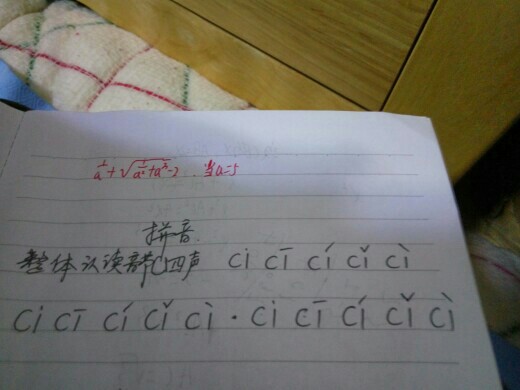 1/a + √(1/a² + a² - 2) . 当a=5
拼音
整体认读音节ci四声 ci cī cí cǐ cì
ci cī cí cǐ cì · ci cī cí cǐ cì